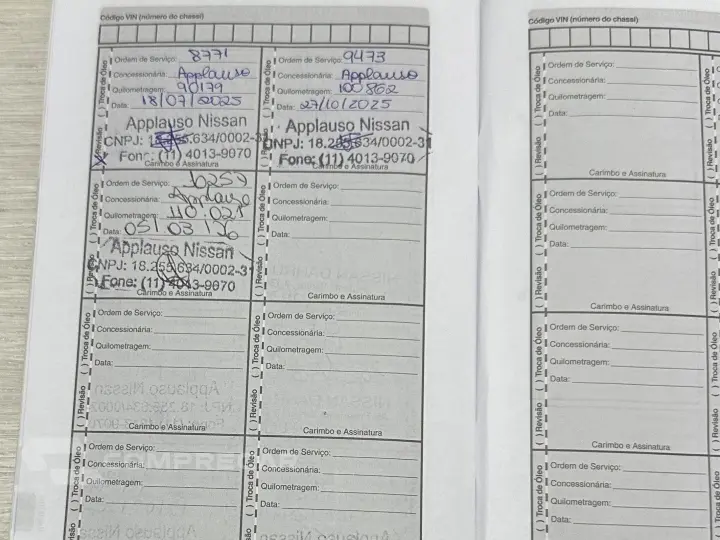 Código VIN (número do chassi)
Ordem de Serviço: 8771
Concessionária: Applauso
Quilometragem: 90179
Data: 18/07/2025
( ) Troca de Óleo
(X) Revisão
Applauso Nissan
CNPJ: 18.255.634/0002-31
Fone: (11) 4013-9070
Carimbo e Assinatura
Ordem de Serviço: 9473
Concessionária: Applauso
Quilometragem: 100862
Data: 27/10/2025
( ) Troca de Óleo
( ) Revisão
Applauso Nissan
CNPJ: 18.255.634/0002-31
Fone: (11) 4013-9070
Carimbo e Assinatura
Ordem de Serviço: 10259
Concessionária: Applauso
Quilometragem: 110.021
Data: 03/03/26
( ) Troca de Óleo
( ) Revisão
Applauso Nissan
CNPJ: 18.255.634/0002-31
Fone: (11) 4013-9070
Carimbo e Assinatura
Ordem de Serviço:
Concessionária:
Quilometragem:
Data:
( ) Troca de Óleo
( ) Revisão
Carimbo e Assinatura
Ordem de Serviço:
Concessionária:
Quilometragem:
Data:
( ) Troca de Óleo
( ) Revisão
Carimbo e Assinatura
Ordem de Serviço:
Concessionária:
Quilometragem:
Data:
( ) Troca de Óleo
( ) Revisão
Carimbo e Assinatura
Ordem de Serviço:
Concessionária:
Quilometragem:
Data:
( ) Troca de Óleo
Ordem de Serviço:
Concessionária:
Quilometragem:
Data:
( ) Troca de Óleo
Código VIN (número do chassi)
Ordem de Serviço:
Concessionária:
Quilometragem:
Data:
( ) Troca de Óleo
( ) Revisão
Carimbo e Assinatura
Ordem de Serviço:
Concessionária:
Quilometragem:
Data:
( ) Troca de Óleo
( ) Revisão
Carimbo e Assinatura
Ordem de Serviço:
Concessionária:
Quilometragem:
Data:
( ) Troca de Óleo
( ) Revisão
Carimbo e Assinatura
Ordem de Serviço:
Concessionária:
Quilometragem:
Data:
( ) Troca de Óleo